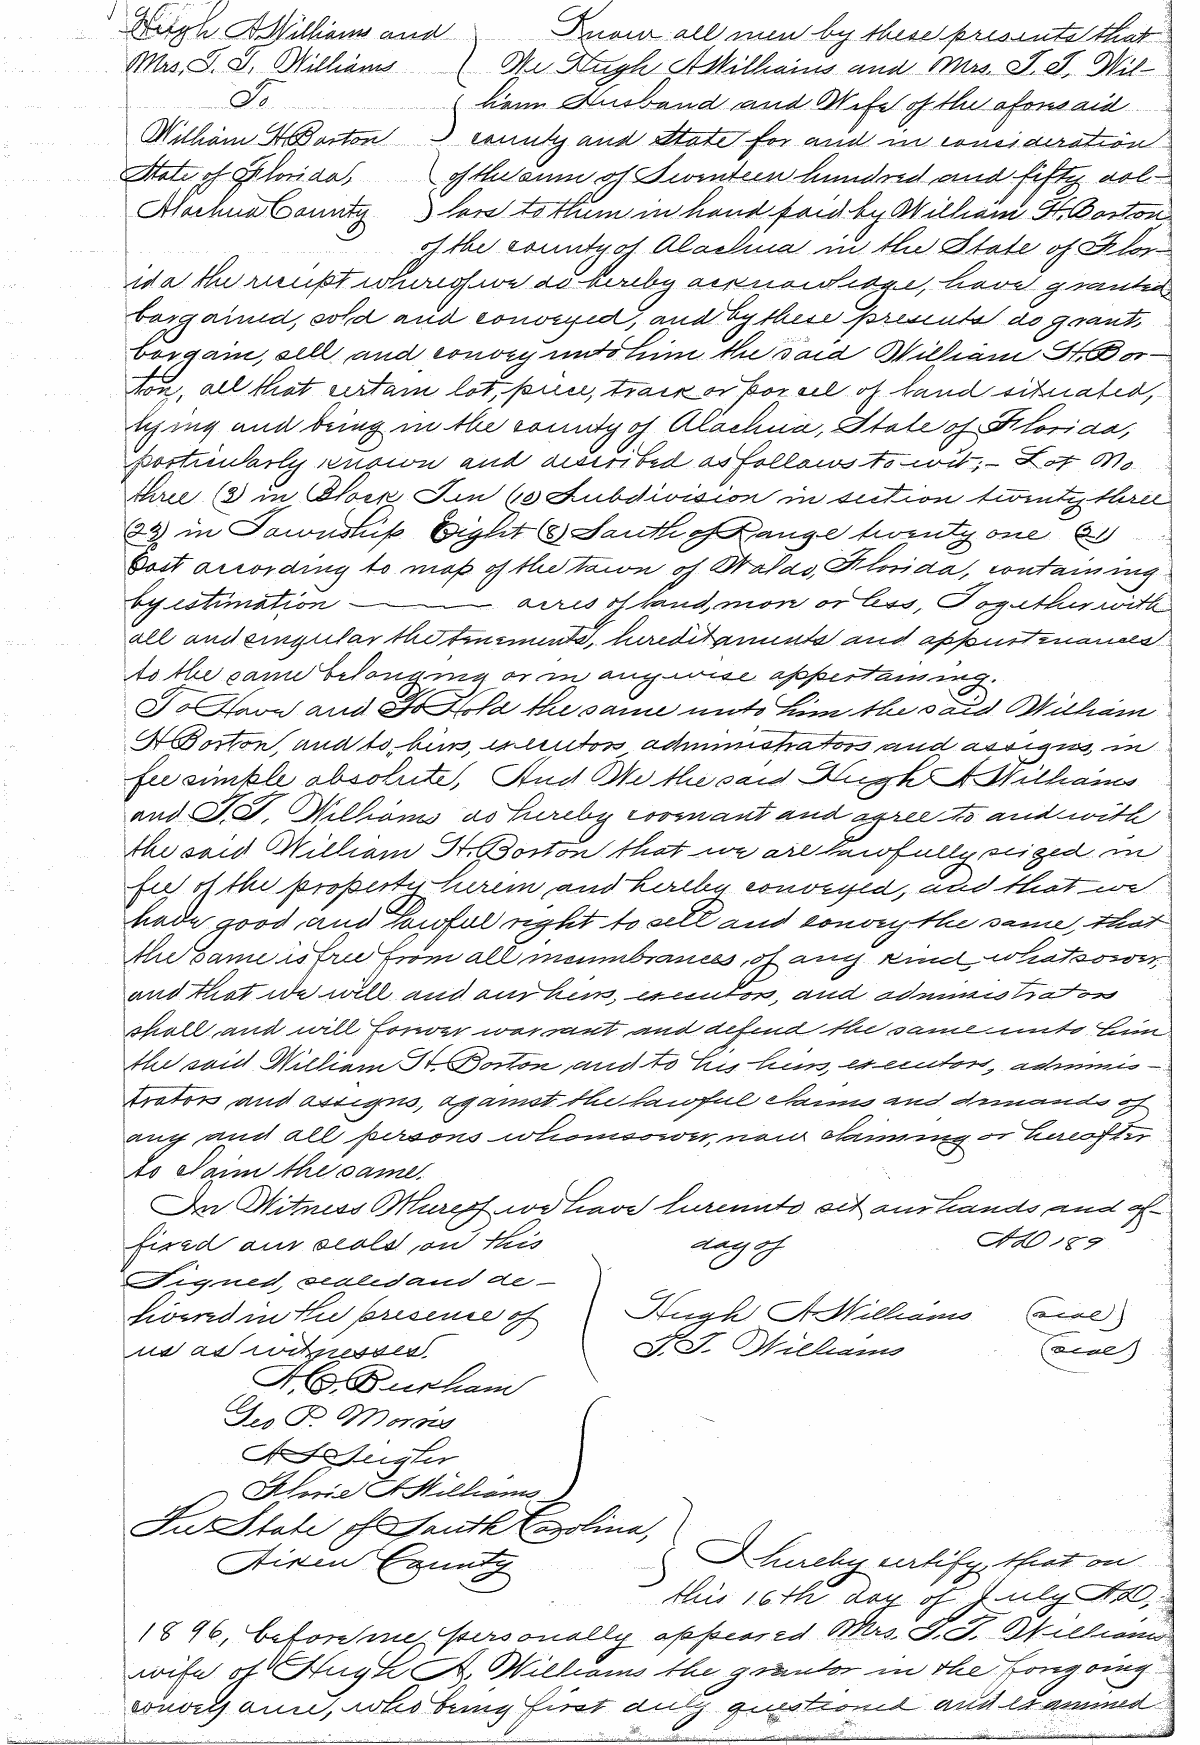 Hugh A Williams and
Mrs. T. T. Williams
To
William H. Borton
State of Florida,
Alachua County
Know all men by these presents that
We Hugh A Williams and Mrs. T. T. Wil-
liam Husband and Wife of the aforesaid
county and State for and in consideration
of the sum of Seventeen hundred and fifty dol-
lars to them in hand paid by William H. Borton
of the county of Alachua in the State of Flor-
ida the receipt whereof we do hereby acknowledge, have granted
bargained, sold and conveyed, and by these presents do grant,
bargain, sell, and convey unto him the said William H. Bor-
ton, all that certain lot, piece, track or parcel of land situated,
lying and being in the county of Alachua, State of Florida,
particularly known and described as follows to wit;- Lot No
three (3) in Block Ten (10) Subdivision in section twenty three
(23) in Township Eight (8) South of Range twenty one (21)
East according to map of the town of Waldo, Florida, containing
by estimation ——— acres of land, more or less, Together with
all and singular the tenements, hereditaments and appurtenances
to the same belonging or in anywise appertaining.
To Have and To Hold the same unto him the said William
H Borton, and to, heirs, executors, administrators and assigns, in
fee simple absolute, And We the said Hugh A Williams
and T. T. Williams do hereby covenant and agree to and with
the said William H. Borton that we are lawfully seized in
fee of the property herein and hereby conveyed, and that we
have good and lawful right to sell and convey the same, that
the same is free from all incumbrances of any kind whatsoever,
and that we will and our heirs, executors, and administrators
shall and will forever warrant and defend the same unto him
the said William H. Borton and to his heirs, executors, adminis-
trators and assigns, against the lawful claims and demands of
any and all persons whomsoever, now claiming or hereafter
to claim the same.
In Witness Whereof we have hereunto set our hands and af-
fixed our seals, on this day of AD 189
Signed, sealed and de-
livered in the presence of
us as witnesses.
Hugh A Williams (seal)
T. T. Williams (seal)
H. C. Burkham
Geo P. Morris
A S Seigler
Florie A Williams
The State of South Carolina,
Aiken County
I hereby certify, that on
this 16th day of July AD,
1896, before me, personally appeared Mrs. T. T. Williams
wife of Hugh A. Williams the grantor in the foregoing
conveyance, who being first duly questioned and examined